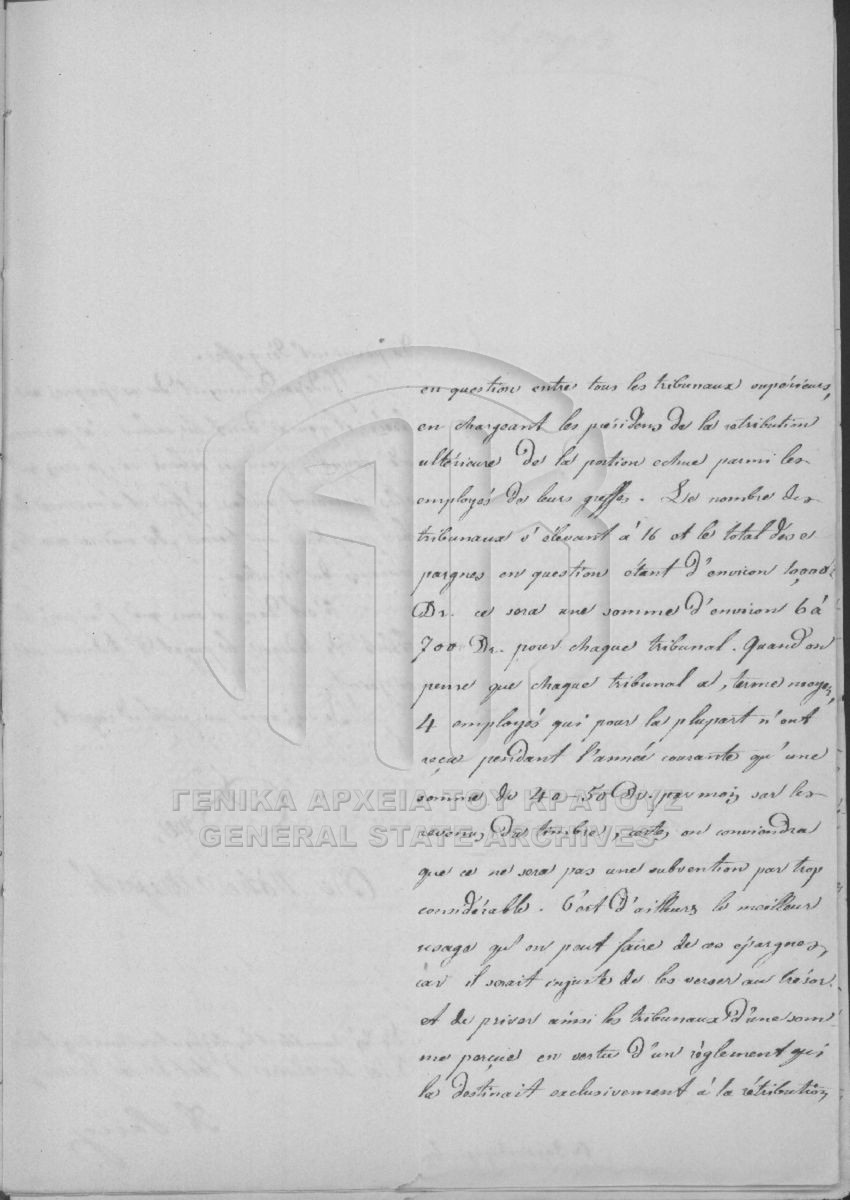 en question entre tous les tribunaux supérieurs,
en chargeant les présidens de la retribution
ultérieure de la portion echue parmi les
employés de leurs greffes. Le nombre des
tribunaux s'élevant à 16 et le total des e
pargnes en question étant d'environ 10,000
Dr. ce sera une somme d'environ 6 à
700 Dr. pour chaque tribunal. Quand on
pense que chaque tribunal a, terme moyen,
4 employés qui pour la plupart n'ont
reçu pendant l'année courante qu'une
somme de 40-50 Dr. par mois sur les
revenus du timbre, certes on conviendra
que ce ne sera pas une subvention par trop
considérable. C'est d'ailleurs le meilleur
usage qu'on peut faire de ces épargnes,
car il serait injuste de les verser au trésor
et de priver ainsi les tribunaux d'une som
me perçue en vertu d'un règlement qui
la destinait exclusivement à la rétribution
ΓΕΝΙΚΑ ΑΡΧΕΙΑ ΤΟΥ ΚΡΑΤΟΥΣ
GENERAL STATE ARCHIVES